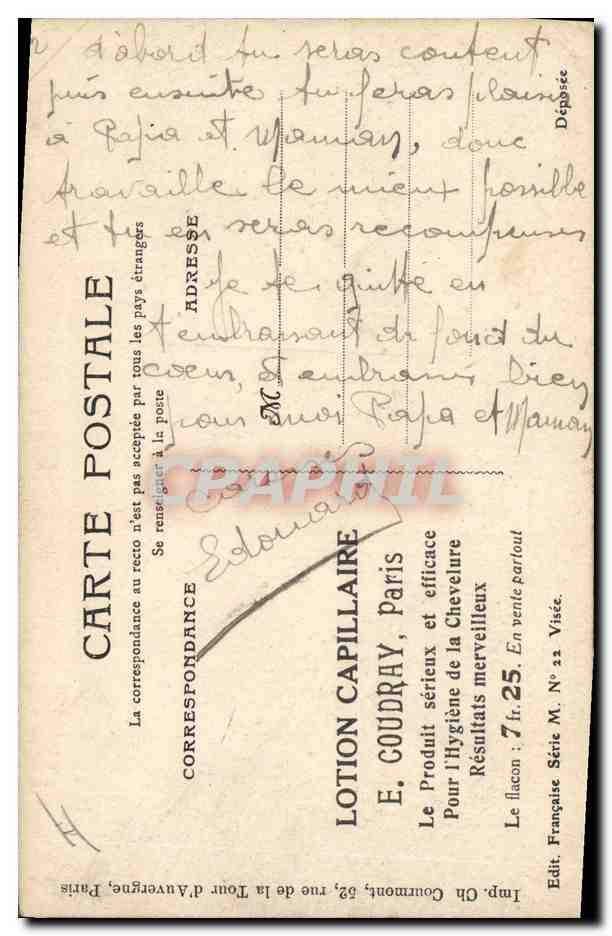 2 d'abord tu seras content
puis ensuite tu feras plaisir
à Papa et Maman, donc
travaille le mieux possible
et tu en seras recompensés
Je te quitte en
t'embrassant du fond du
coeur, embrasses bien
pour moi Papa et Maman
Edouard
CARTE POSTALE
La correspondance au recto n'est pas acceptée par tous les pays étrangers
Se renseigner à la poste
CORRESPONDANCE
ADRESSE
M
LOTION CAPILLAIRE
E. COUDRAY, Paris
Le Produit sérieux et efficace
Pour l'Hygiène de la Chevelure
Résultats merveilleux
Le flacon : 7 fr. 25. En vente partout
Edit. Française Série M. N° 22 Visée.
Déposée
Imp. Ch Courmont, 52, rue de la Tour d'Auvergne, Paris
CPAPHIL